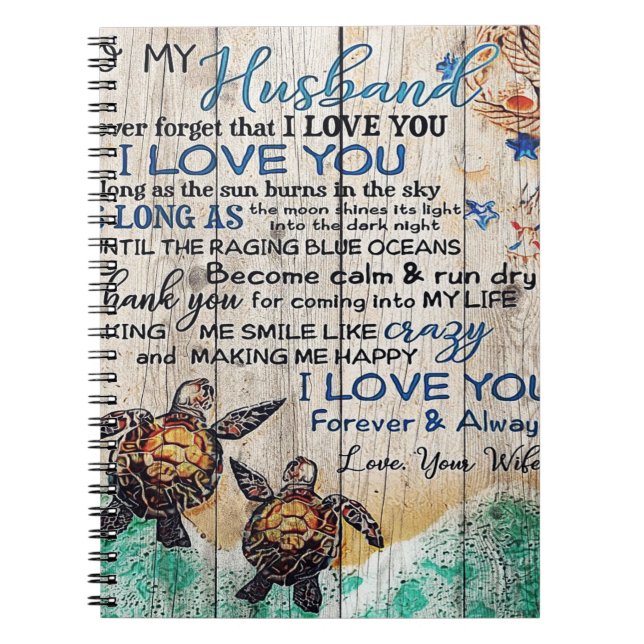 MY Husband
ver forget that I LOVE YOU
I LOVE YOU
long as the sun burns in the sky
LONG AS the moon shines its light
into the dark night
TIL THE RAGING BLUE OCEANS
Become calm & run dry
hank you for coming into MY LIFE
KING ME SMILE LIKE crazy
and MAKING ME HAPPY
I LOVE YOU
Forever & Alway
Love, Your Wife